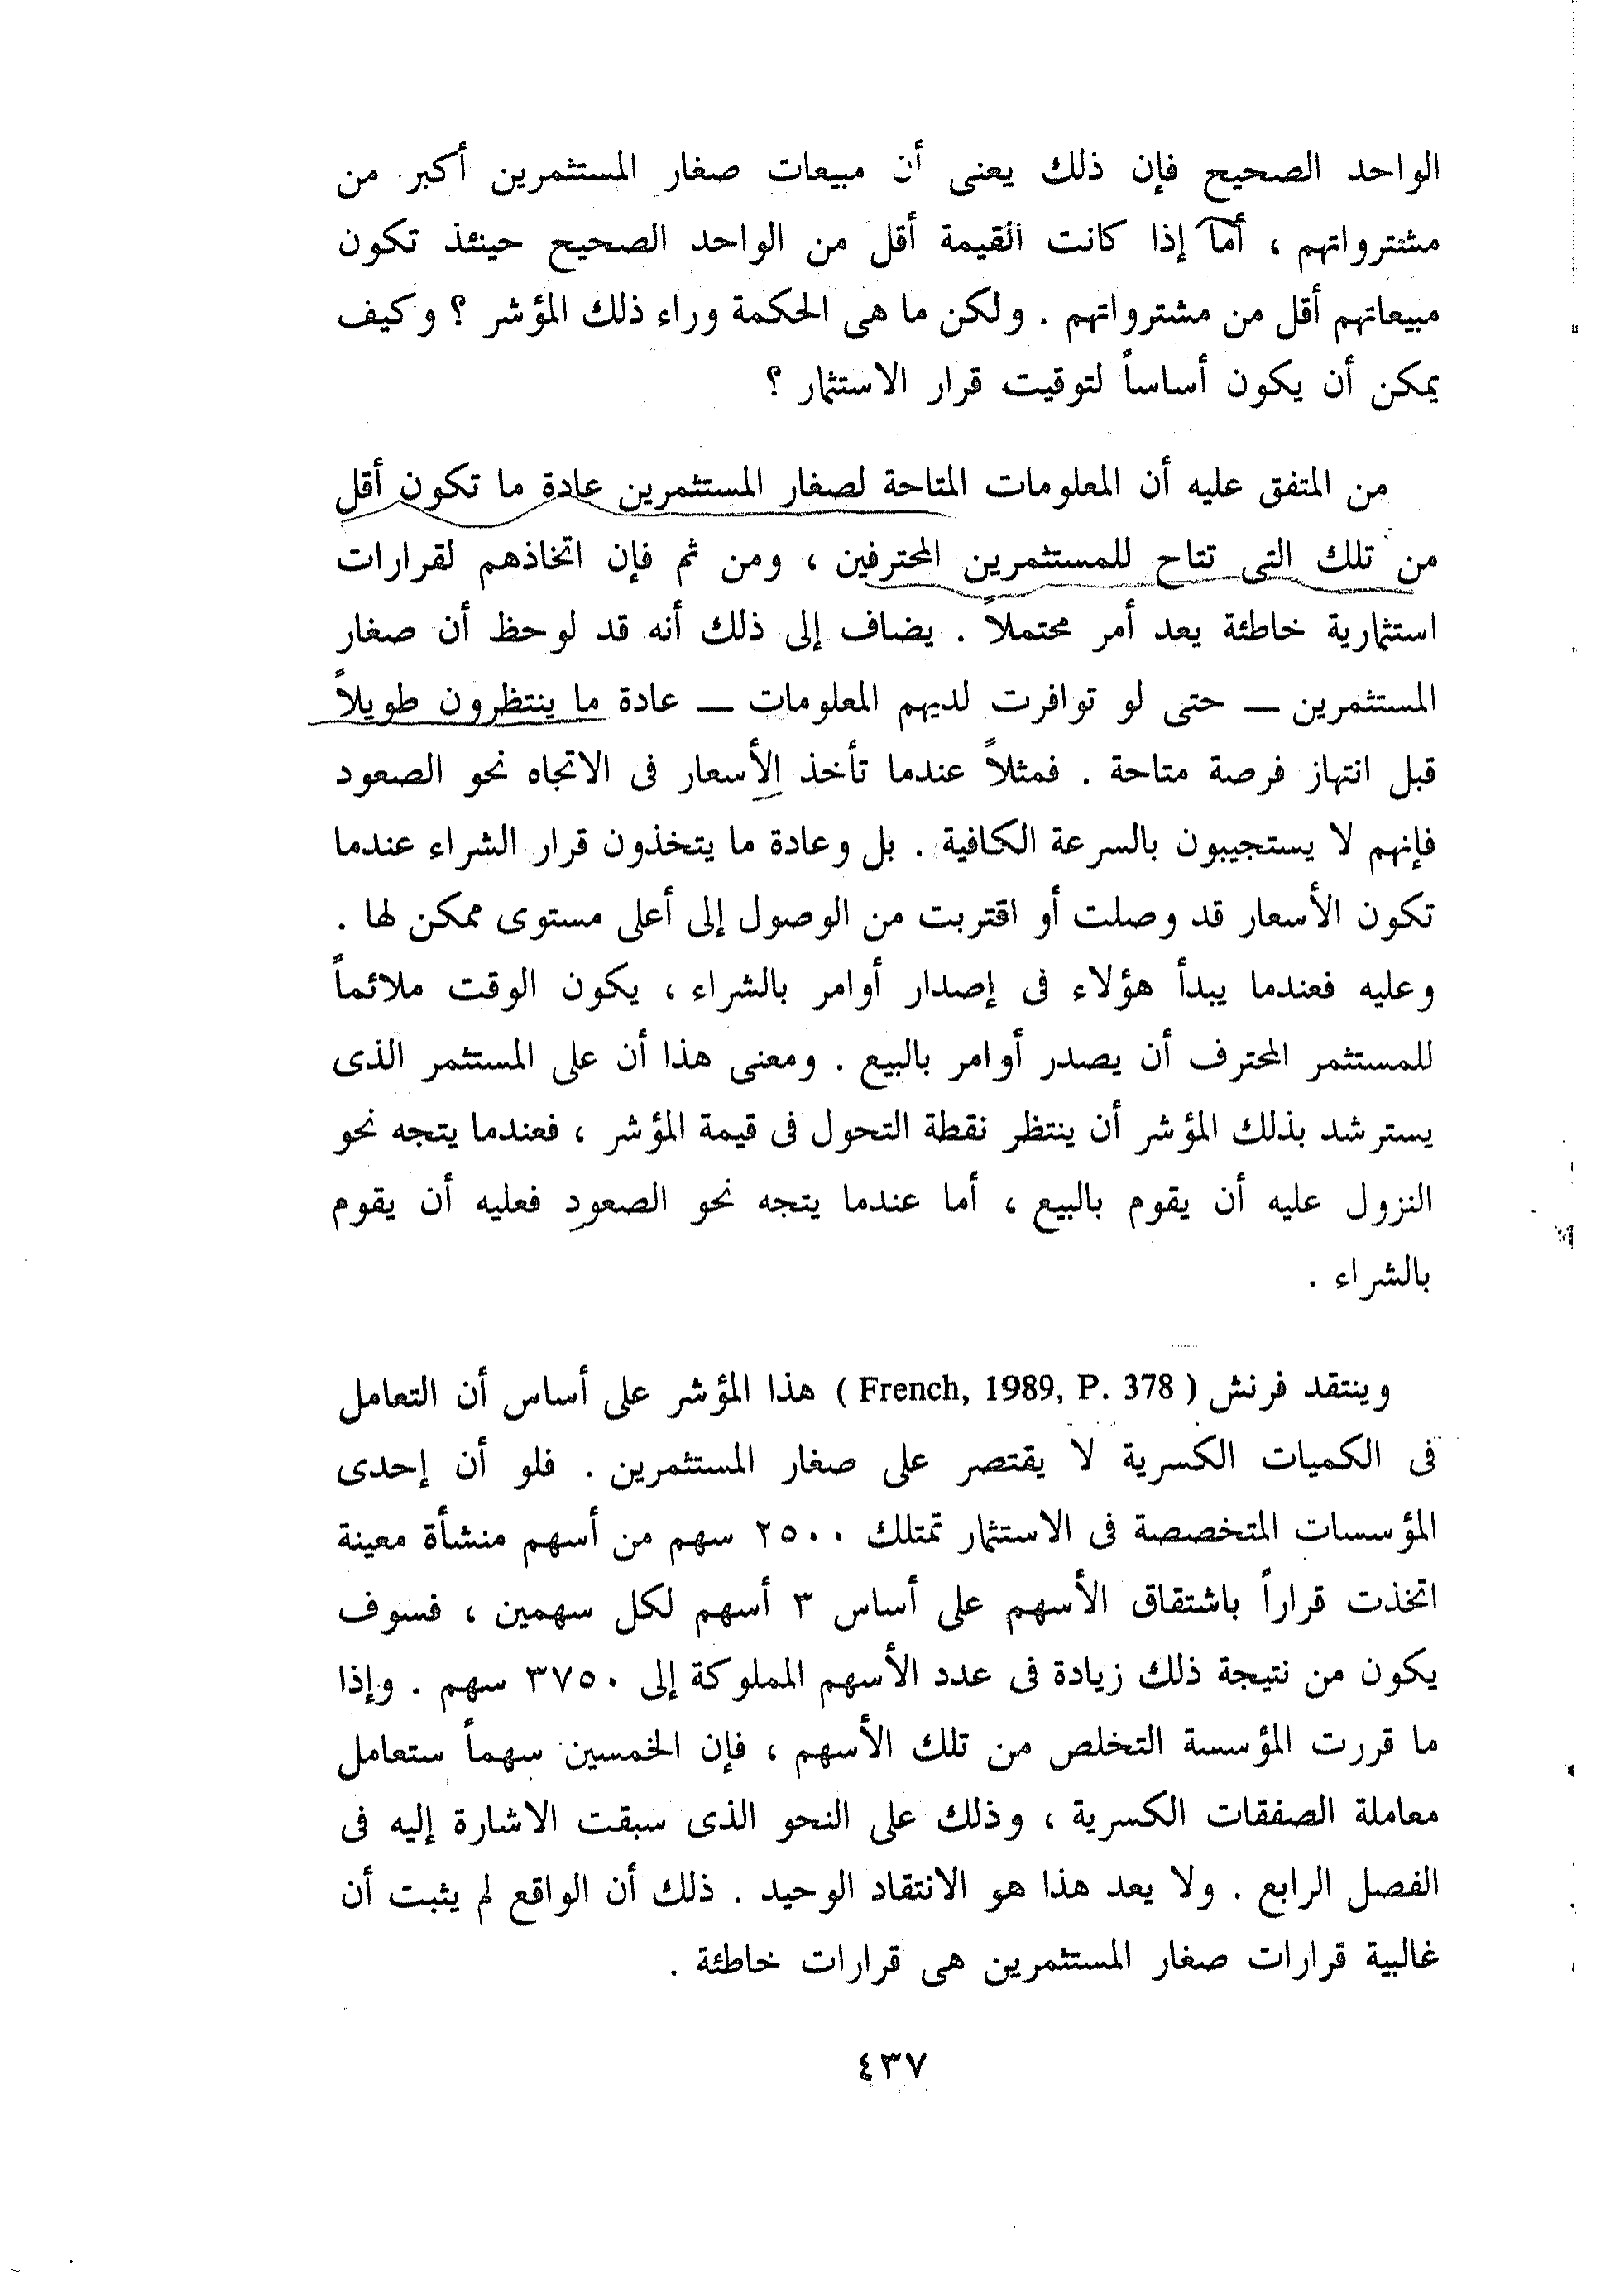 الواحد الصحيح فإن ذلك يعنى أن مبيعات صغار المستثمرين أكبر من
مشترواتهم ، أما إذا كانت القيمة أقل من الواحد الصحيح حينئذ تكون
مبيعاتهم أقل من مشترواتهم . ولكن ما هى الحكمة وراء ذلك المؤشر ؟ وكيف
يمكن أن يكون أساساً لتوقيت قرار الاستثمار ؟
من المتفق عليه أن المعلومات المتاحة لصغار المستثمرين عادة ما تكون أقل
من تلك التى تتاح للمستثمرين المحترفين ، ومن ثم فإن اتخاذهم لقرارات
استثمارية خاطئة يعد أمر محتملاً . يضاف إلى ذلك أنه قد لوحظ أن صغار
المستثمرين — حتى لو توافرت لديهم المعلومات — عادة ما ينتظرون طويلاً
قبل انتهاز فرصة متاحة . فمثلاً عندما تأخذ الأسعار فى الاتجاه نحو الصعود
فإنهم لا يستجيبون بالسرعة الكافية . بل وعادة ما يتخذون قرار الشراء عندما
تكون الأسعار قد وصلت أو اقتربت من الوصول إلى أعلى مستوى ممكن لها .
وعليه فعندما يبدأ هؤلاء فى إصدار أوامر بالشراء ، يكون الوقت ملائماً
للمستثمر المحترف أن يصدر أوامر بالبيع . ومعنى هذا أن على المستثمر الذى
يسترشد بذلك المؤشر أن ينتظر نقطة التحول فى قيمة المؤشر ، فعندما يتجه نحو
النزول عليه أن يقوم بالبيع ، أما عندما يتجه نحو الصعود فعليه أن يقوم
بالشراء .
وينتقد فرنش ( French, 1989, P. 378 ) هذا المؤشر على أساس أن التعامل
فى الكميات الكسرية لا يقتصر على صغار المستثمرين . فلو أن إحدى
المؤسسات المتخصصة فى الاستثمار تمتلك ٢٥٠٠ سهم من أسهم منشأة معينة
اتخذت قراراً باشتقاق الأسهم على أساس ٣ أسهم لكل سهمين ، فسوف
يكون من نتيجة ذلك زيادة فى عدد الأسهم المملوكة إلى ٣٧٥٠ سهم . وإذا
ما قررت المؤسسة التخلص من تلك الأسهم ، فإن الخمسين سهماً ستعامل
معاملة الصفقات الكسرية ، وذلك على النحو الذى سبقت الاشارة إليه فى
الفصل الرابع . ولا يعد هذا هو الانتقاد الوحيد . ذلك أن الواقع لم يثبت أن
غالبية قرارات صغار المستثمرين هى قرارات خاطئة .
٤٣٧